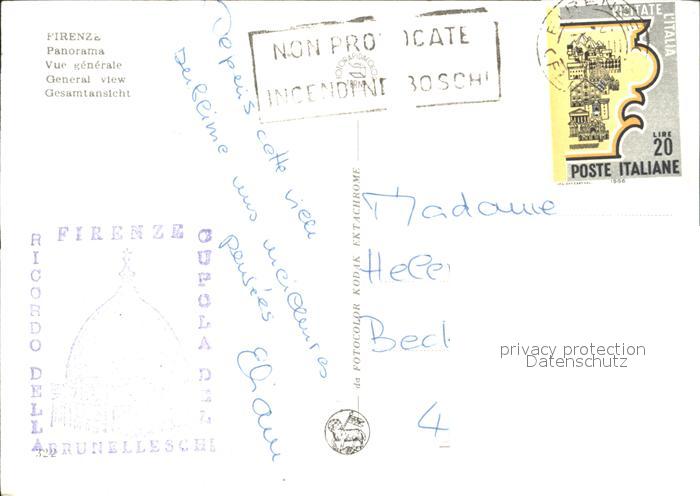 FIRENZE
Panorama
Vue générale
General view
Gesamtansicht
NON PRO OCATE
INCENDI NE BOSCHI
FIRENZE
VISITATE L'ITALIA
LIRE
20
POSTE ITALIANE
1966
Depuis cette ville
sublime mes meilleures
pensées
Eliane
da FOTOCOLOR KODAK EKTACHROME
Madame
Hele
Beck
4
privacy protection
Datenschutz
RICORDO DELLA
FIRENZE
CUPOLA DEL
BRUNELLESCHI
322